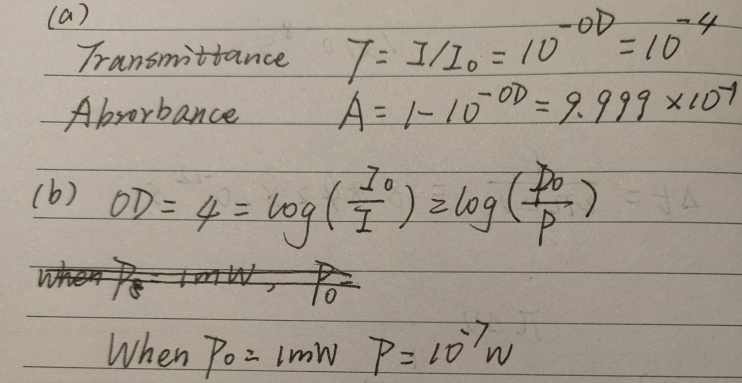 (a)
Transmittance T = I/I₀ = 10^-OD = 10^-4
Absorbance A = 1 - 10^-OD = 9.999 × 10^-1
(b) OD = 4 = log(I₀/I) = log(P₀/P)
When P₀ = 1mW P = 10^-7 W